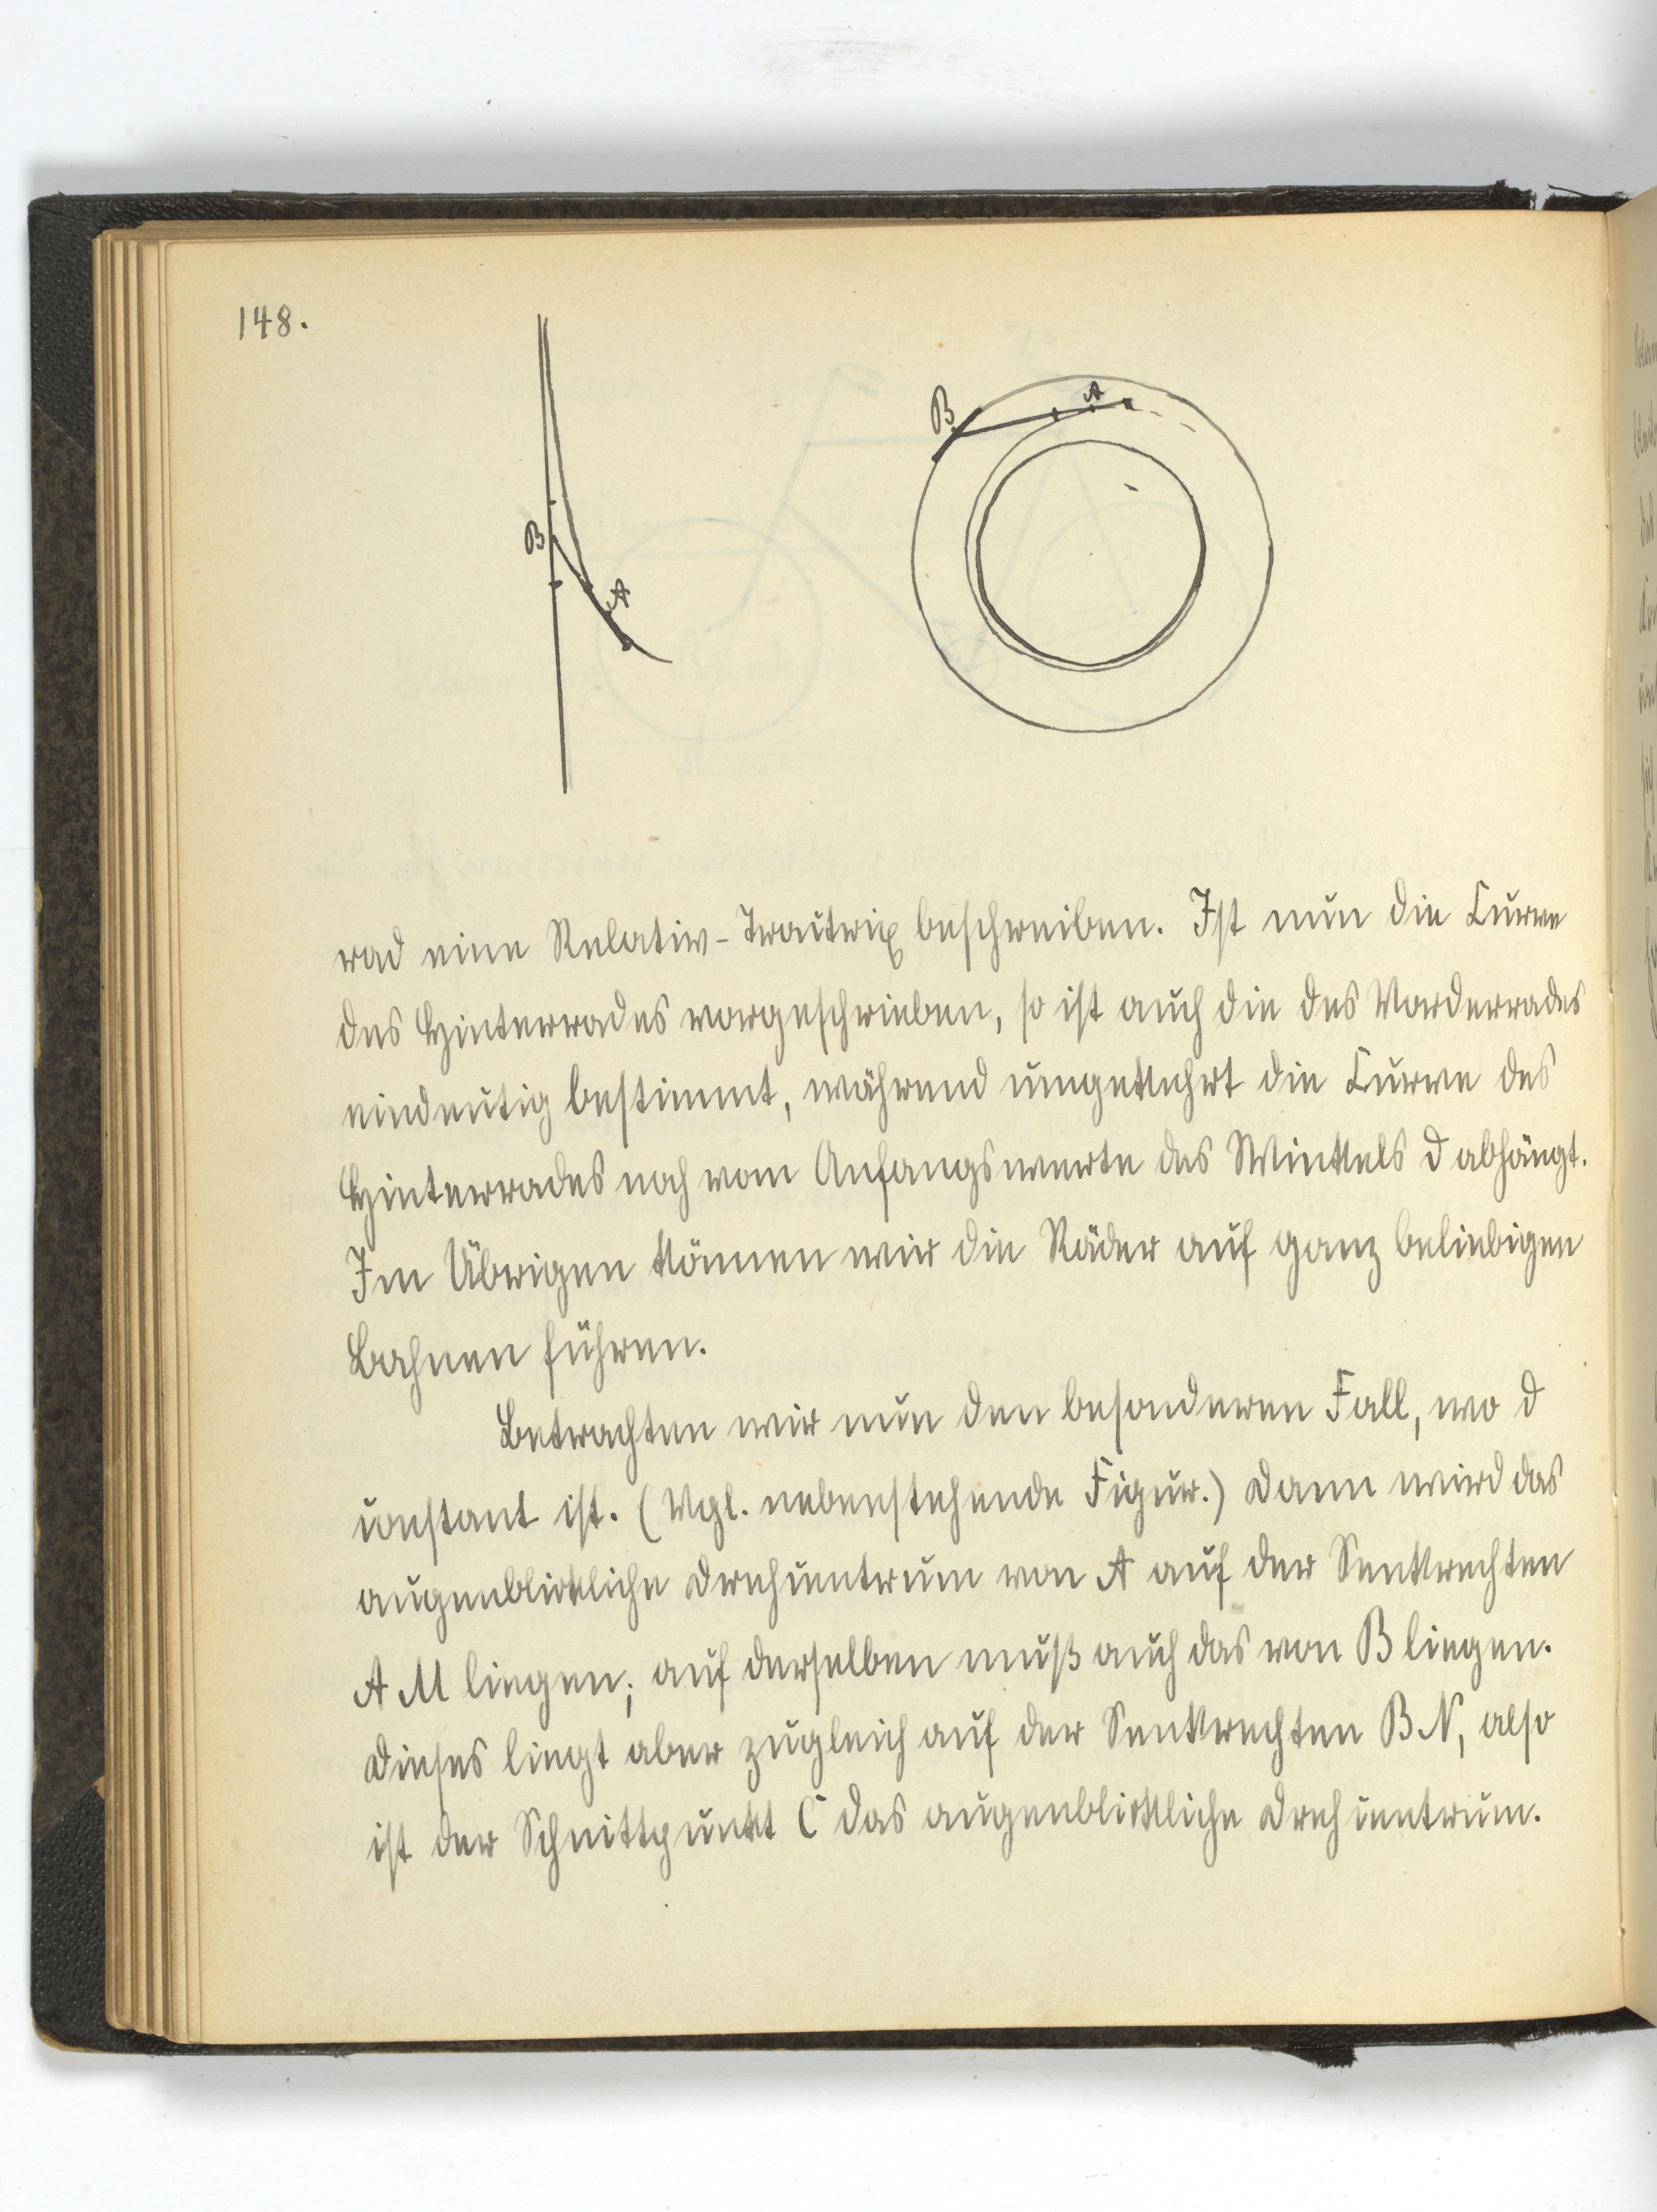 148.
B
A
B
A
rad eine Relativ-Tractrix beschreiben. Ist nun die Curve
des Hinterrades vorgeschrieben, so ist auch die des Vorderrades
eindeutig bestimmt, während umgekehrt die Curve des
Hinterrades noch vom Anfangswerte des Winkels d abhängt.
Im Übrigen können wir die Räder auf ganz beliebigen
Bahnen führen.
Betrachten wir nun den besonderen Fall, wo d
constant ist. (Vgl. nebenstehende Figur.) Dann wird das
augenblickliche Drehcentrum von A auf der Senkrechten
AM liegen; auf derselben muß auch das von B liegen.
Dieses liegt aber zugleich auf der Senkrechten BN, also
ist der Schnittpunkt C das augenblickliche Drehcentrum.